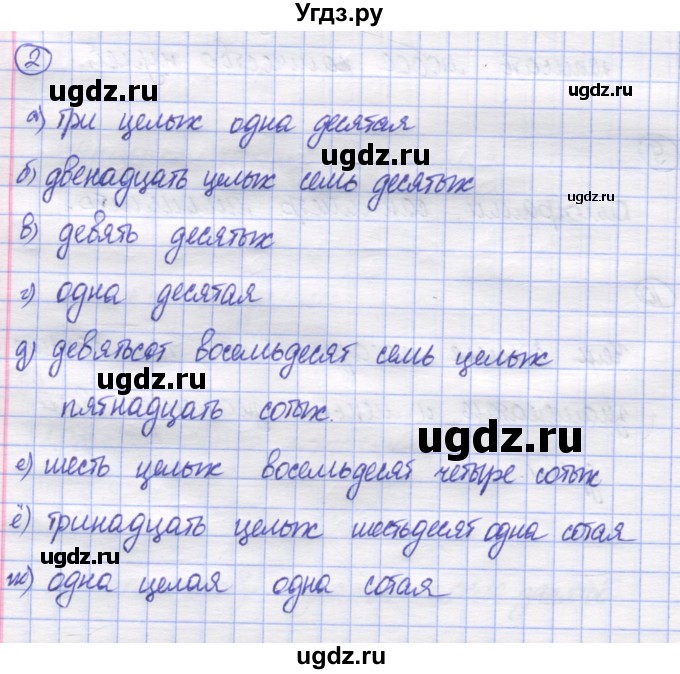 Угдз.ру
2
ugdz.ru
ugdz.ru
а) три целых одна десятая
ugdz.ru
б) двенадцать целых семь десятых
ugdz.ru
в) девять десятых
г) одна десятая
ugdz.ru
д) девятьсот восемьдесят семь целых
ugdz.ru
пятнадцать сотых.
ugdz.ru
е) шесть целых восемьдесят четыре сотых
ё) тринадцать целых шестьдесят одна сотая
ugdz.ru
ж) одна целая одна сотая
ugdz.ru
ugdz.ru